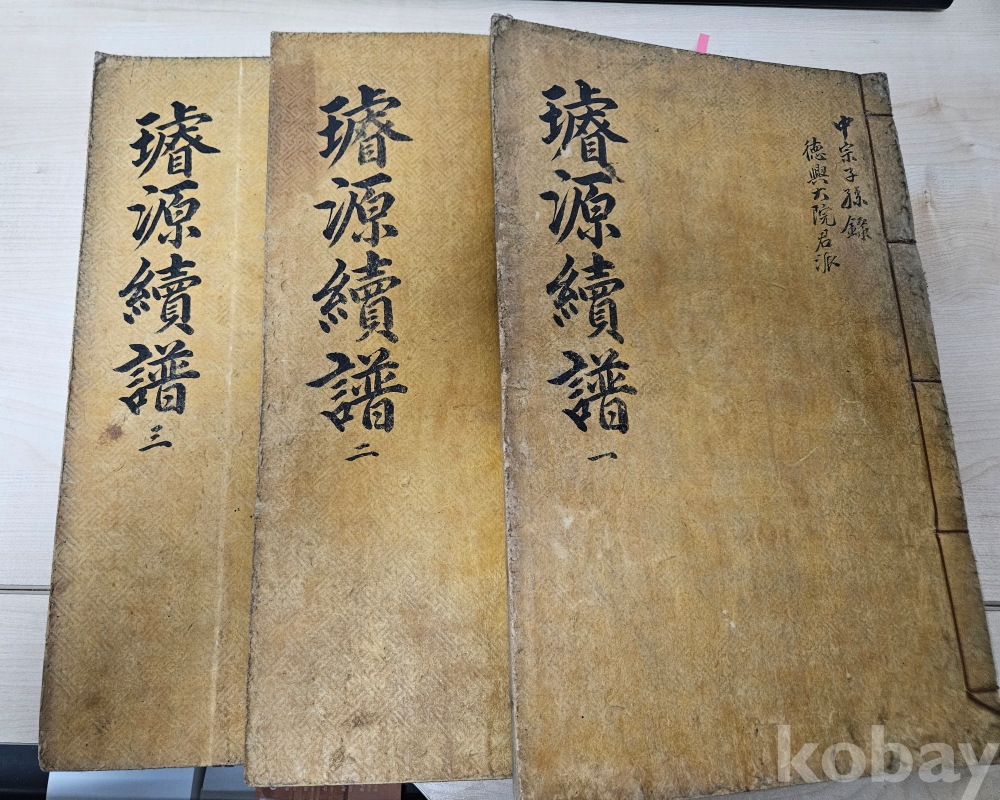 中宗子孫錄
德興大院君派
璿源續譜 一
璿源續譜 二
璿源續譜 三
kobay